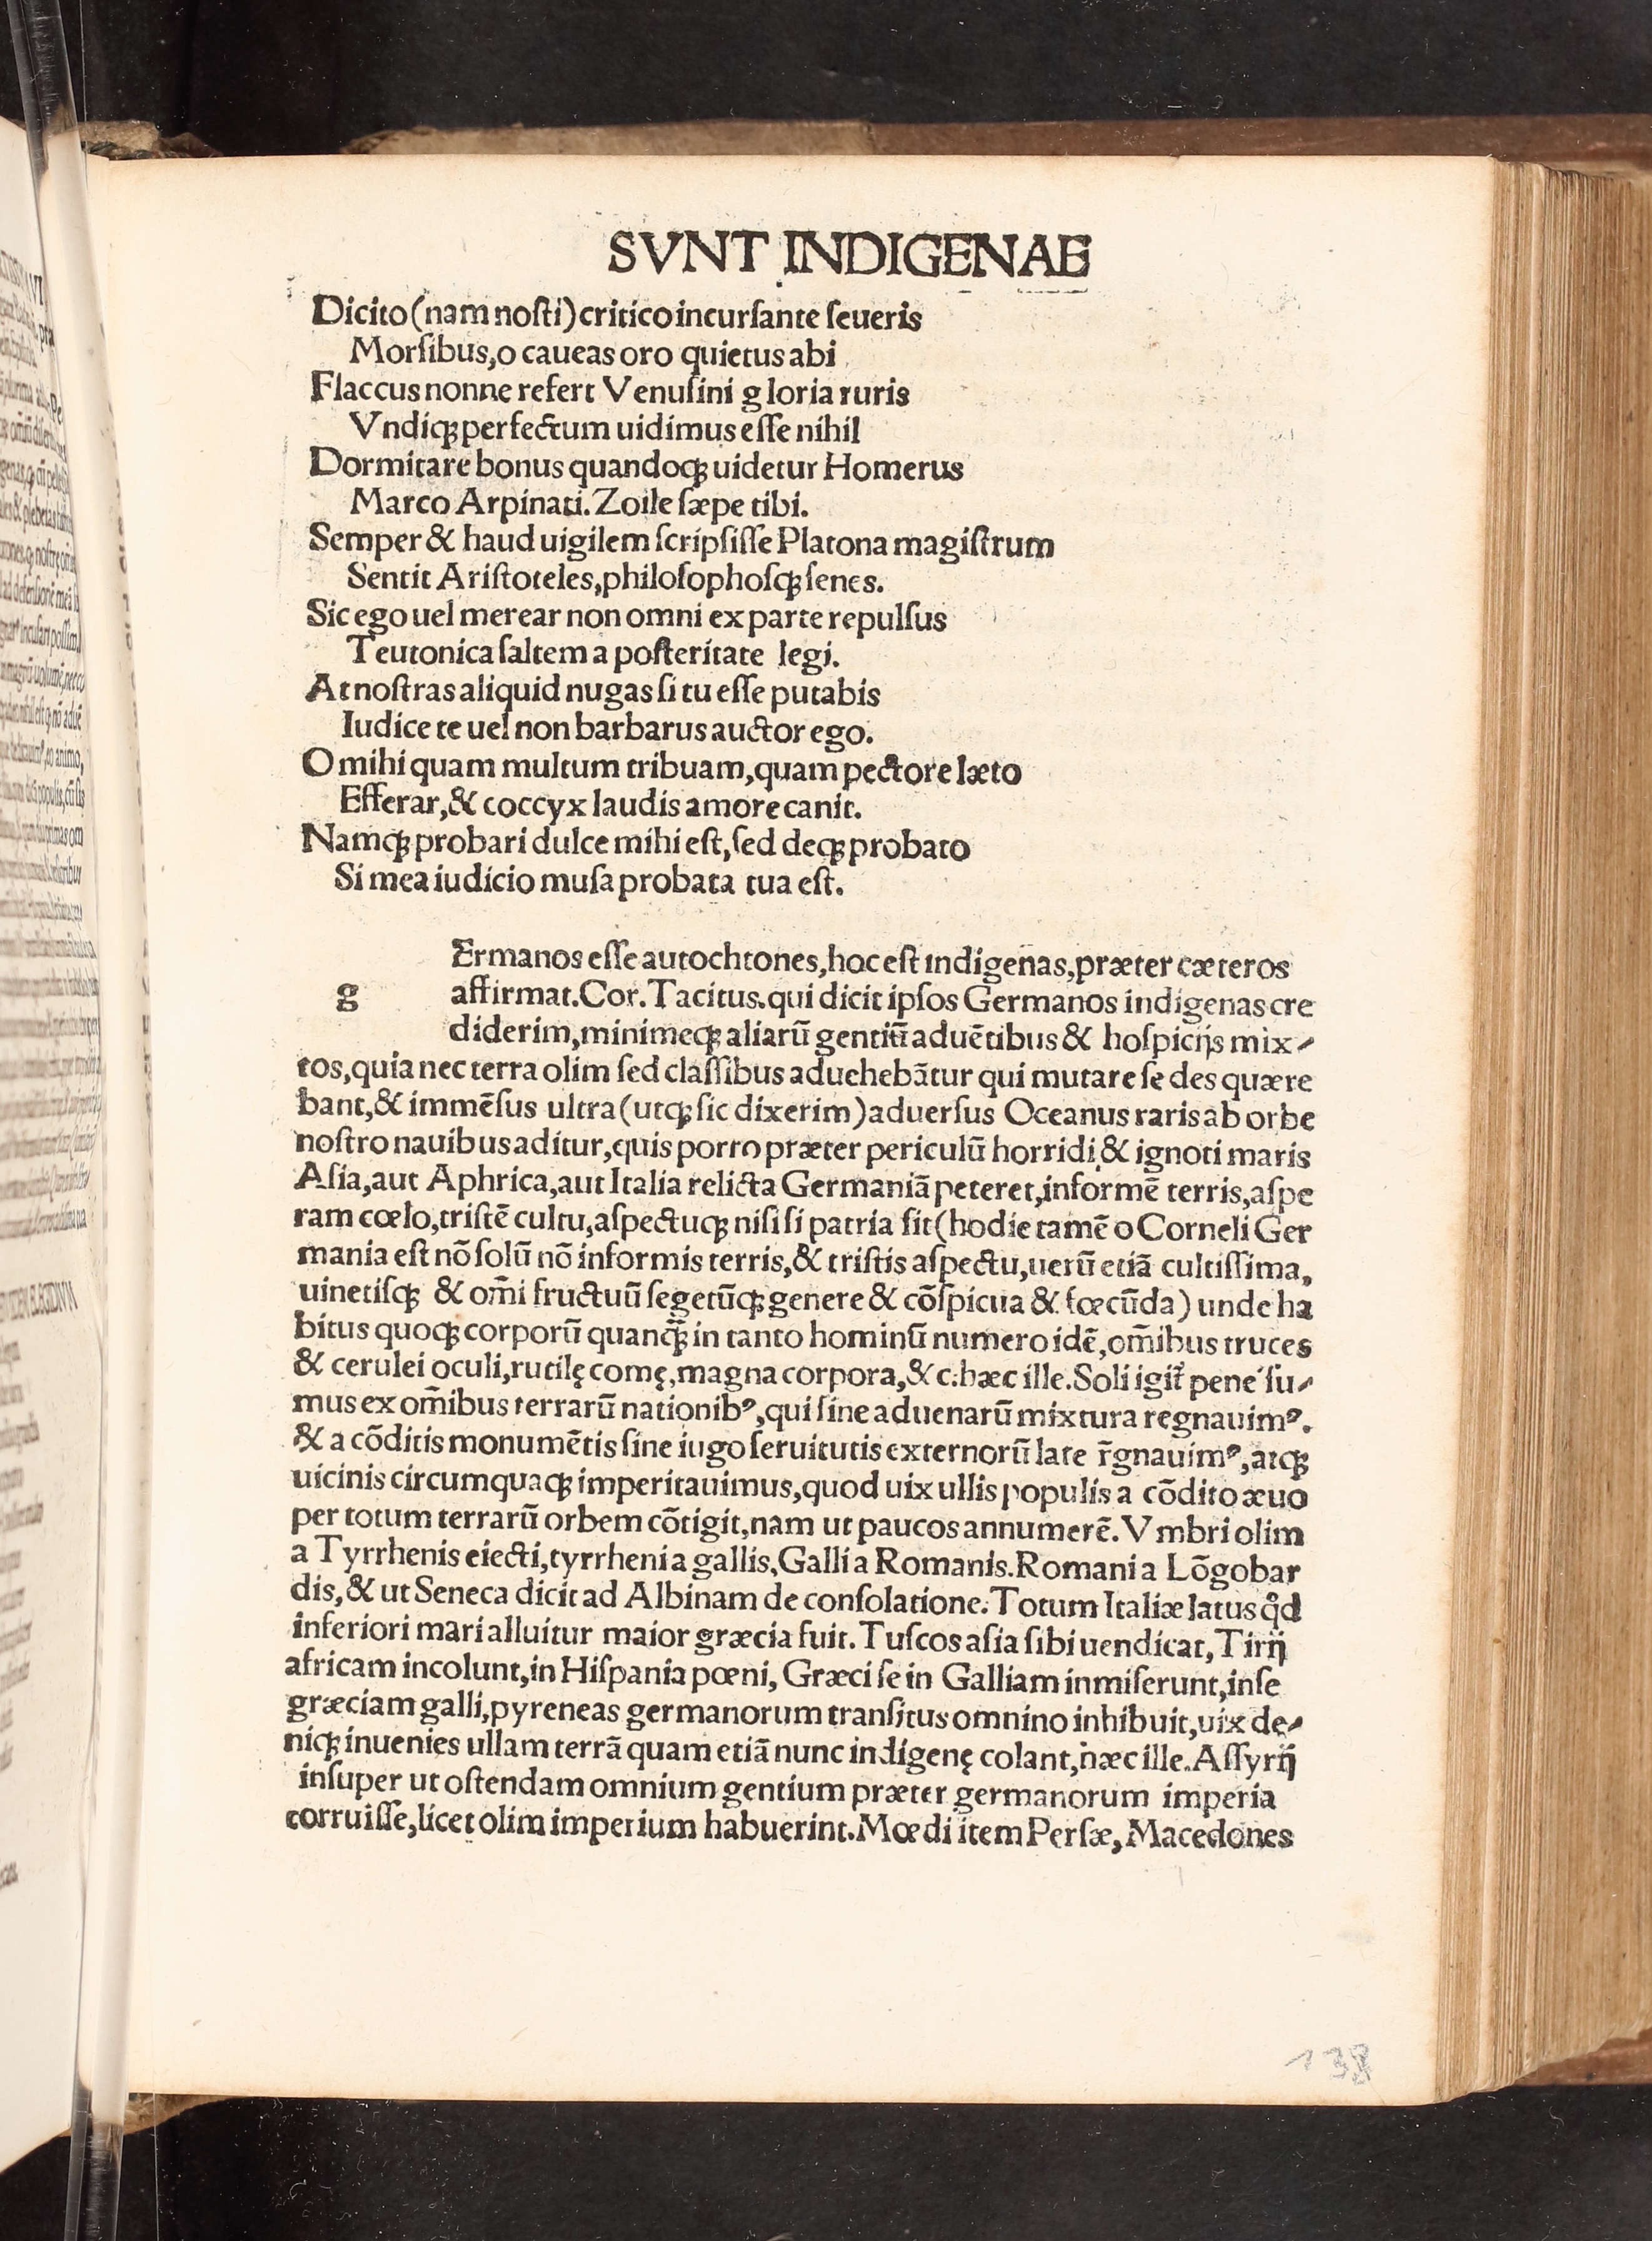 SVNT INDIGENAE
Dicito (nam nosti) critico incursante seueris
Morsibus, o caueas oro quietus abi
Flaccus nonne refert Venusini gloria ruris
Vndiqꝫ perfectum uidimus esse nihil
Dormitare bonus quandoqꝫ uidetur Homerus
Marco Arpinati. Zoile sæpe tibi.
Semper & haud uigilem scripsisse Platona magistrum
Sentit Aristoteles, philosophosqꝫ senes.
Sic ego uel merear non omni ex parte repulsus
Teutonica saltem a posteritate legi.
At nostras aliquid nugas si tu esse putabis
Iudice te uel non barbarus auctor ego.
O mihi quam multum tribuam, quam pectore læto
Efferar, & coccyx laudis amore canit.
Namqꝫ probari dulce mihi est, sed deqꝫ probato
Si mea iudicio musa probata tua est.
g Ermanos esse autochtones, hoc est indigenas, præter cæteros
affirmat. Cor. Tacitus. qui dicit ipsos Germanos indigenas cre
diderim, minimeqꝫ aliarū gentiū aduētibus & hospicijs mix⸗
tos, quia nec terra olim sed classibus aduehebātur qui mutare sedes quære
bant, & immēsus ultra (utqꝫ sic dixerim) aduersus Oceanus raris ab orbe
nostro nauibus aditur, quis porro præter periculū horridi & ignoti maris
Asia, aut Aphrica, aut Italia relicta Germaniā peteret, informē terris, aspe
ram cœlo, tristē cultu, aspectuqꝫ nisi si patria sit (hodie tamē o Corneli Ger
mania est nō solū nō informis terris, & tristis aspectu, uerū etiā cultissima,
uinetisqꝫ & om̄i fructuū segetūqꝫ genere & cōspicua & fœcūda) unde ha
bitus quoqꝫ corporū quanqꝫ̄ in tanto hominū numero idē, om̄ibus truces
& cerulei oculi, rutilę comę, magna corpora, & c. hæc ille. Soli igit᷑ pene su⸗
mus ex om̄ibus terrarū nationibꝰ, qui sine aduenarū mixtura regnauimꝰ.
& a cōditis monumētis sine iugo seruitutis externorū late r̄gnauimꝰ, atqꝫ
uicinis circumquaqꝫ imperitauimus, quod uix ullis populis a cōdito æuo
per totum terrarū orbem cōtigit, nam ut paucos annumerē. Vmbri olim
a Tyrrhenis eiecti, tyrrheni a gallis, Galli a Romanis. Romani a Lōgobar
dis, & ut Seneca dicit ad Albinam de consolatione. Totum Italiæ latus qͦd
inferiori mari alluitur maior græcia fuit. Tuscos asia sibi uendicat, Tirij
africam incolunt, in Hispania pœni, Græci se in Galliam inmiserunt, inse
græciam galli, pyreneas germanorum transitus omnino inhibuit, uix de⸗
niqꝫ inuenies ullam terrā quam etiā nunc indigenę colant, hæc ille. Assyrij
insuper ut ostendam omnium gentium præter germanorum imperia
corruisse, licet olim imperium habuerint. Mœdi item Persæ, Macedones
138